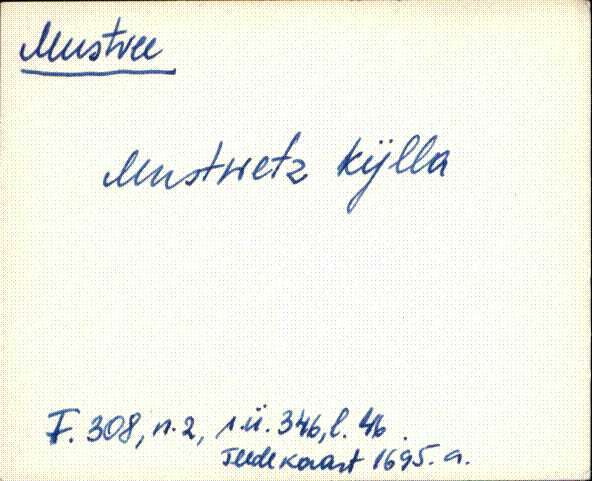 Mustvee
Mustwetz kÿlla
F. 308, n. 2, s.ü. 346, l. 46.
Teede kaart 1695. a.